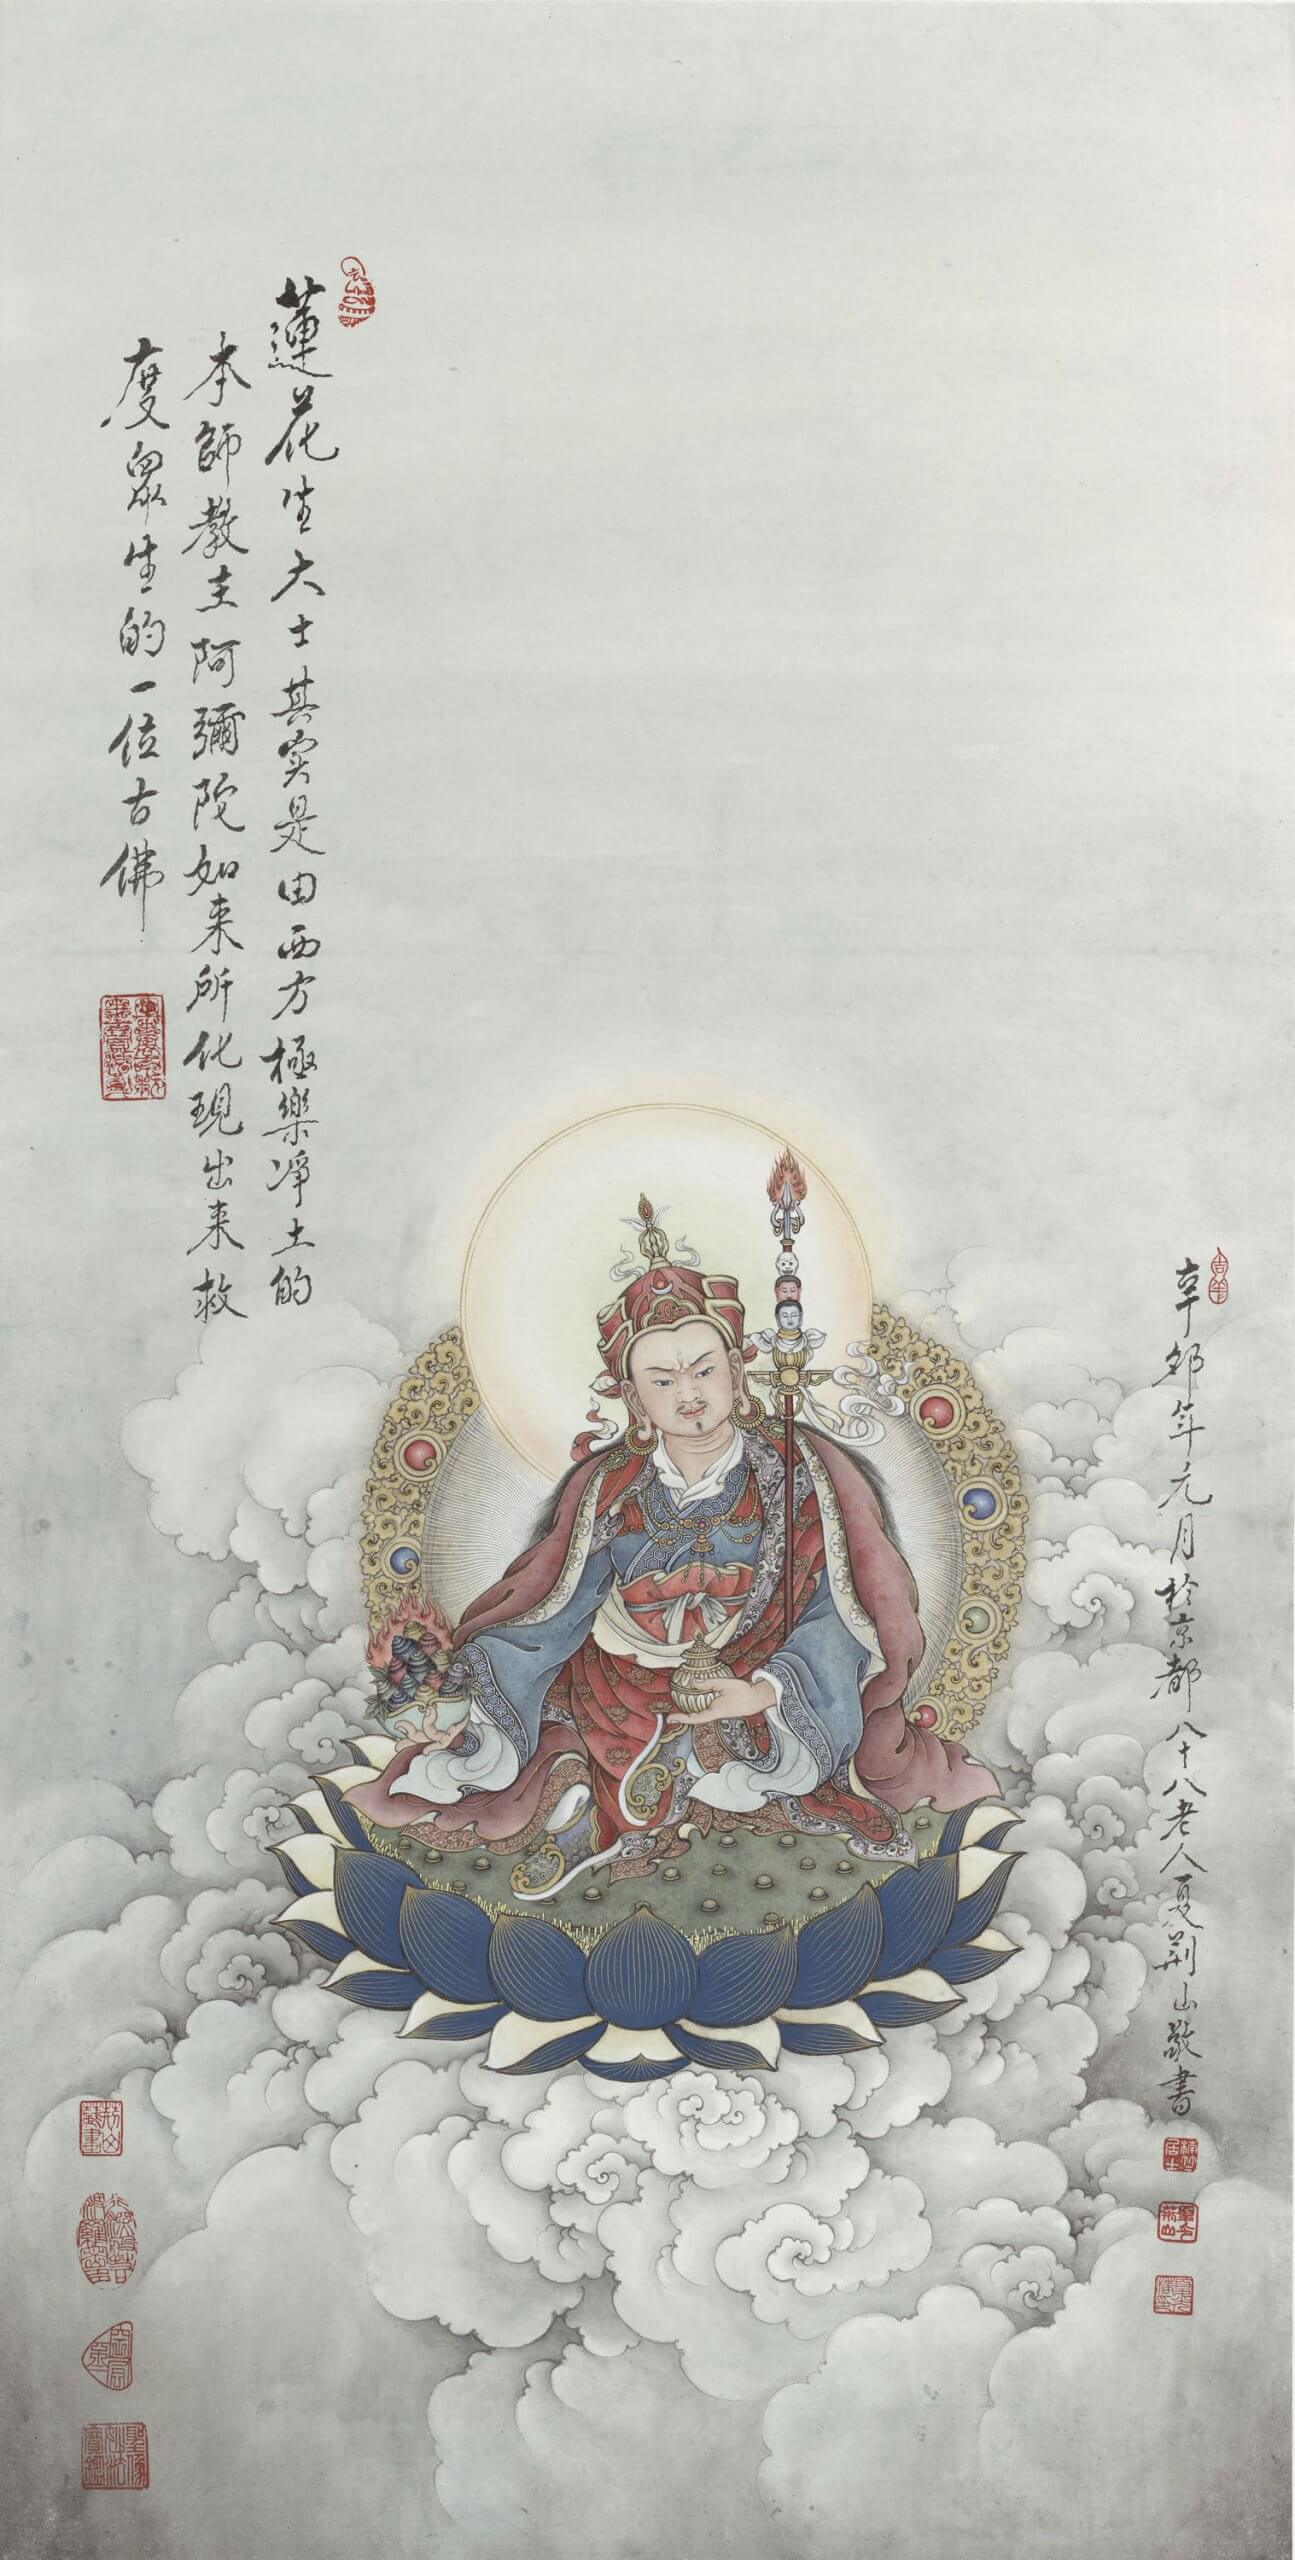 蓮花生大士其实是由西方極樂净土的
本師教主阿彌陀如来所化現出来救
度眾生的一位古佛
辛卯年元月於京都八十八老人夏荆山敬書